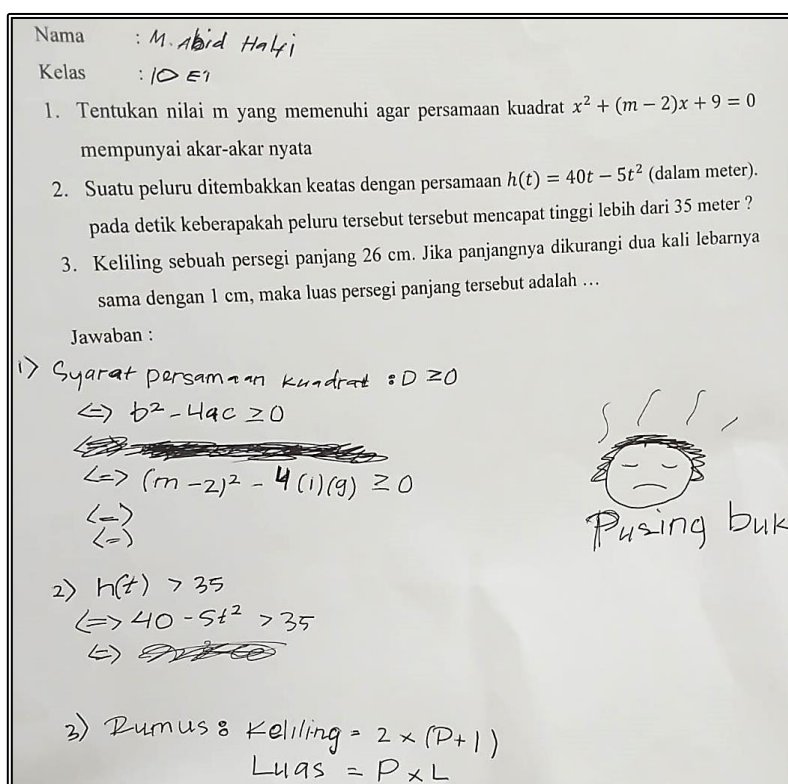 Nama : M. Abid Halfi
Kelas : 10 E1
1. Tentukan nilai m yang memenuhi agar persamaan kuadrat x² + (m − 2)x + 9 = 0
mempunyai akar-akar nyata
2. Suatu peluru ditembakkan keatas dengan persamaan h(t) = 40t − 5t² (dalam meter).
pada detik keberapakah peluru tersebut tersebut mencapat tinggi lebih dari 35 meter ?
3. Keliling sebuah persegi panjang 26 cm. Jika panjangnya dikurangi dua kali lebarnya
sama dengan 1 cm, maka luas persegi panjang tersebut adalah …
Jawaban :
1) Syarat persamaan kuadrat : D ≥ 0
<=> b² - 4ac ≥ 0
<=> (m - 2)² - 4 (1)(9) ≥ 0
<=>
<=>
Pusing buk
2) h(t) > 35
<=> 40 - 5t² > 35
<=>
3) Rumus : Keliling = 2 × (P + l)
Luas = P × L